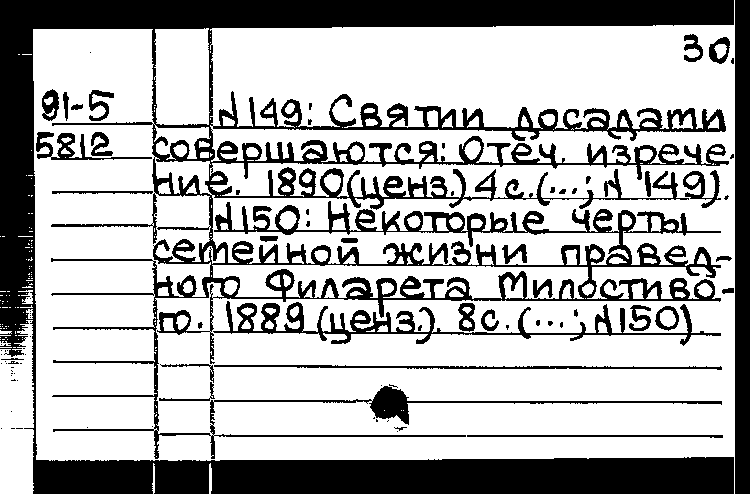 30.
91-5
5812
N149: Святии досадами
совершаются: Отеч. изрече-
ние. 1890(ценз.) 4 с. (...; N 149).
N150: Некоторые черты
семейной жизни правед-
ного Филарета Милостиво-
го. 1889 (ценз.). 8с. (...; N150).